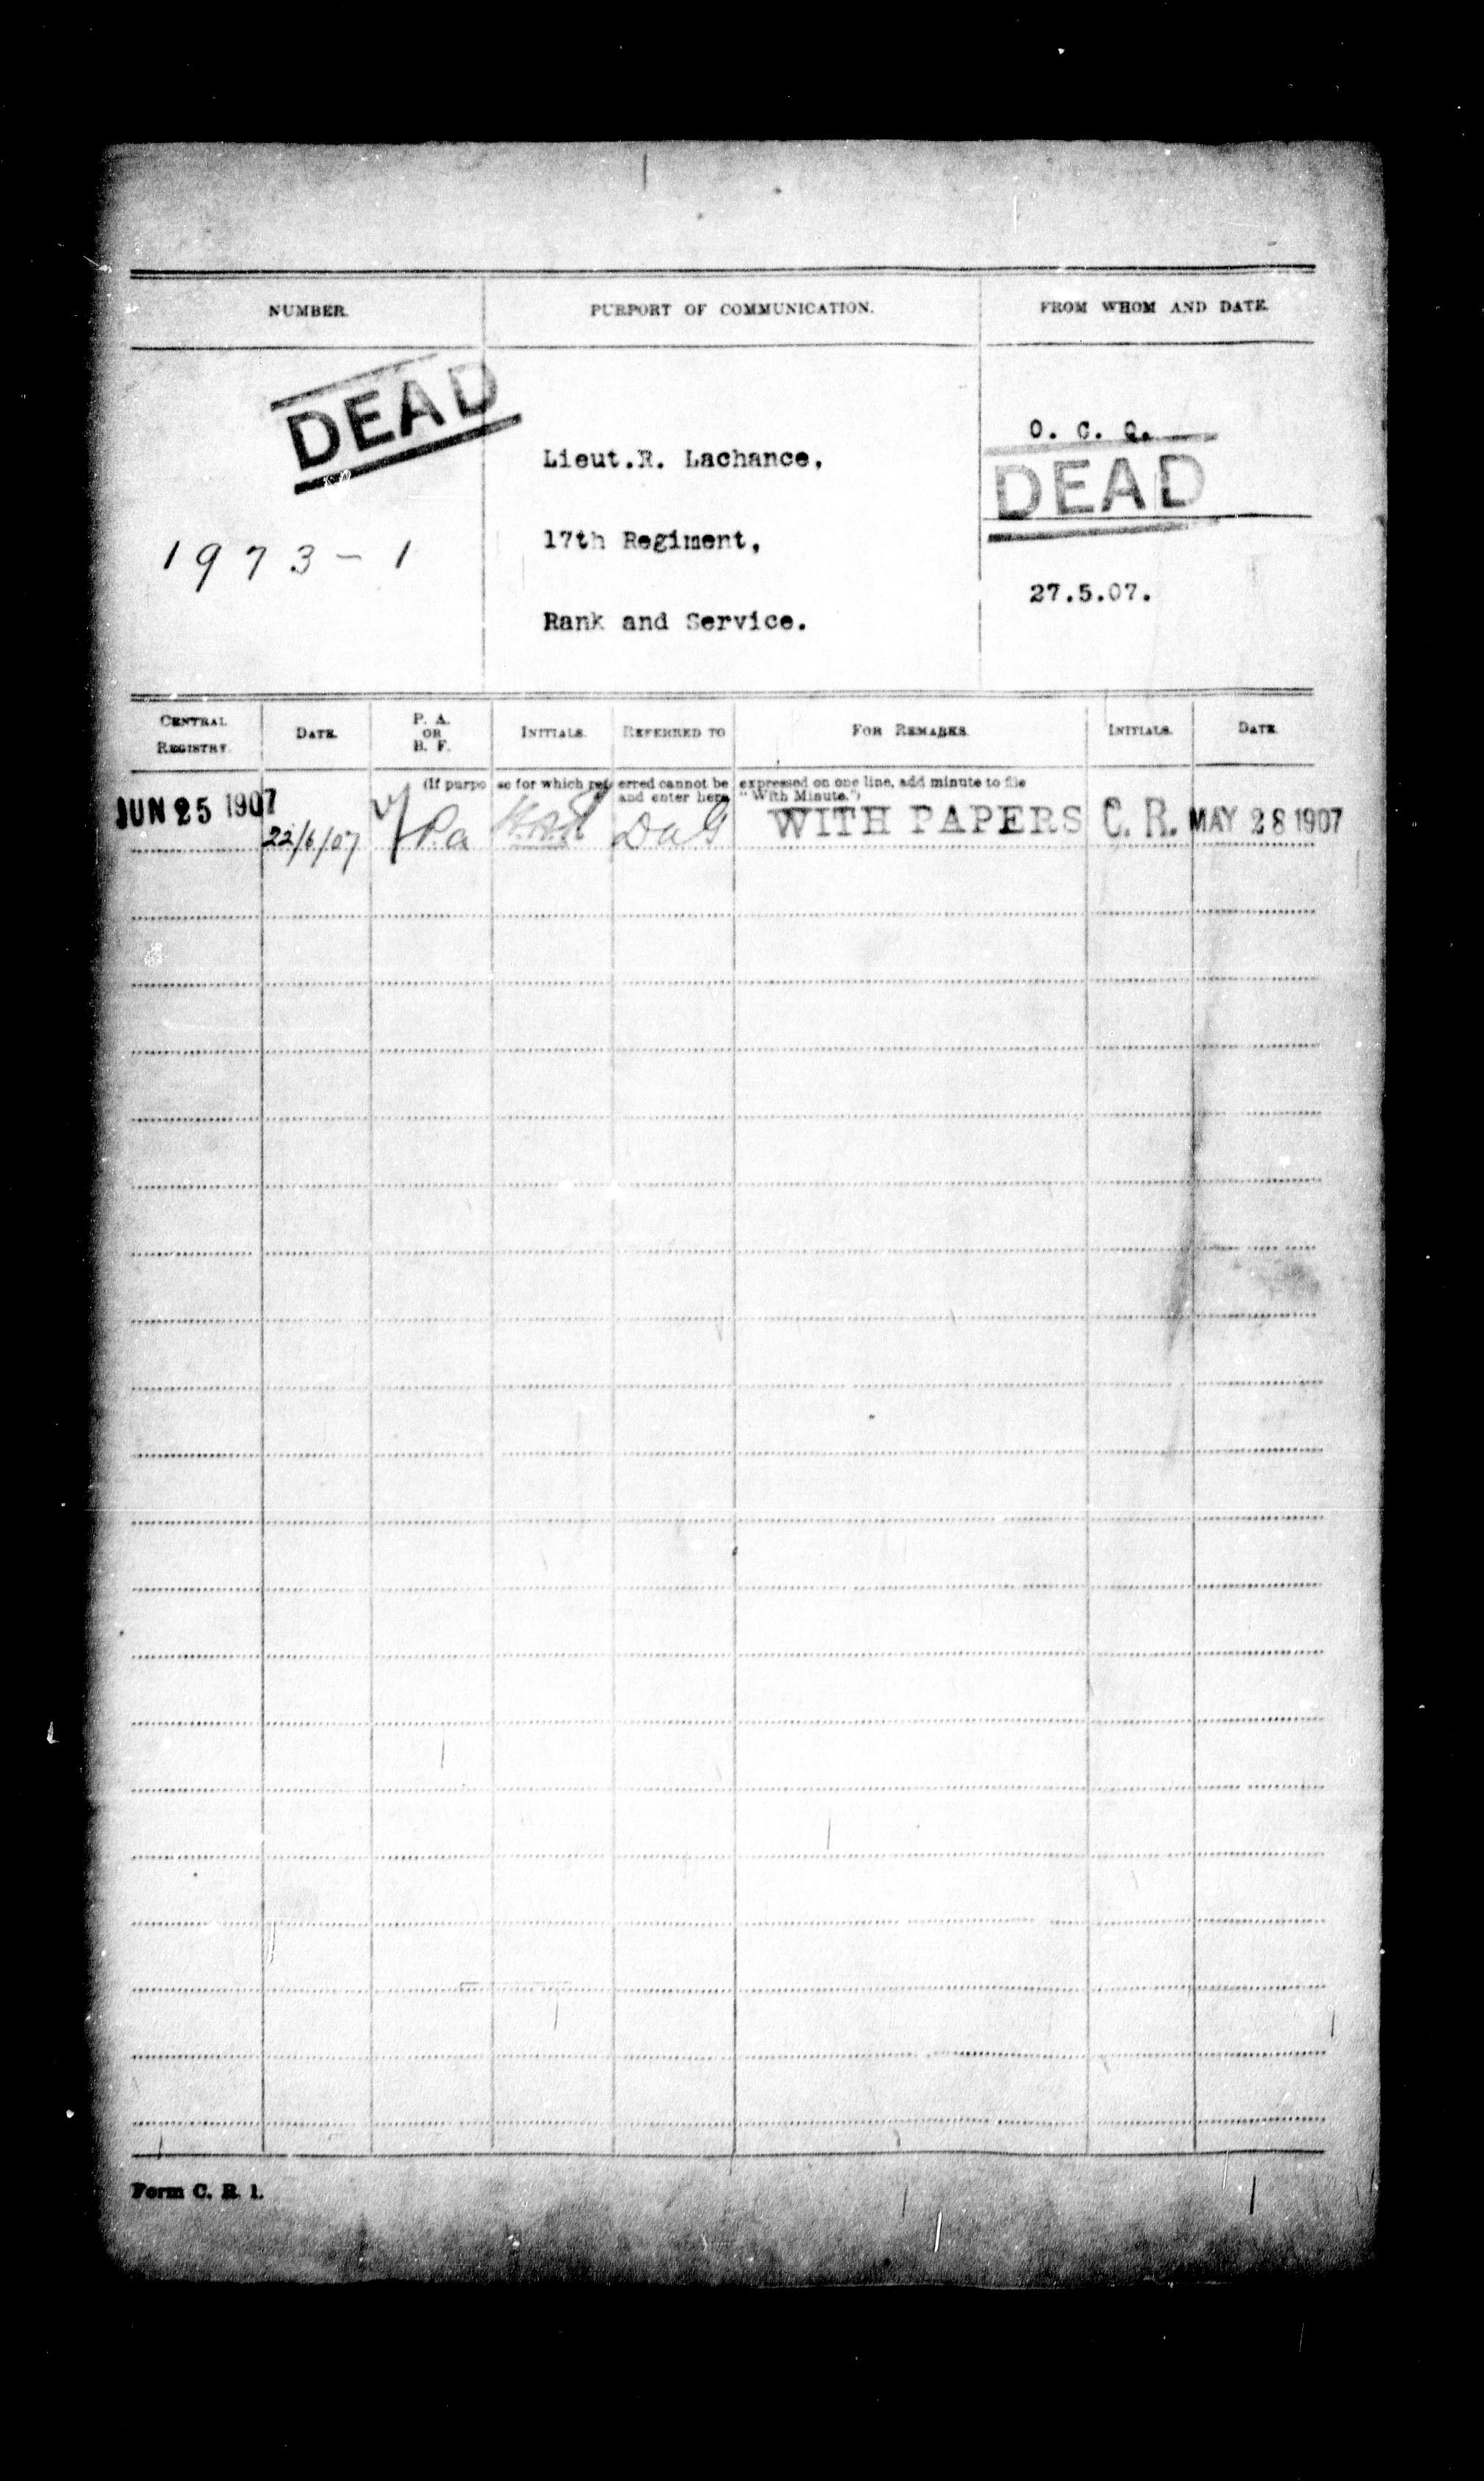 NUMBER. PURPORT OF COMMUNICATION. FROM WHOM AND DATE.
DEAD
O. C. Q.
Lieut.R. Lachance,
DEAD
17th Regiment,
1973-1
27.5.07.
Rank and Service.
CENTRAL REGISTRY. DATE. P. A. OR B. F. INITIALS. REFERRED TO FOR REMARKS. INITIALS. DATE.
(If purpose for which referred cannot be expressed on one line, add minute to file
and enter here "With Minute.")
JUN 25 1907 22/6/07 P.a DAG WITH PAPERS C. R. MAY 28 1907
Form C. R. 1.